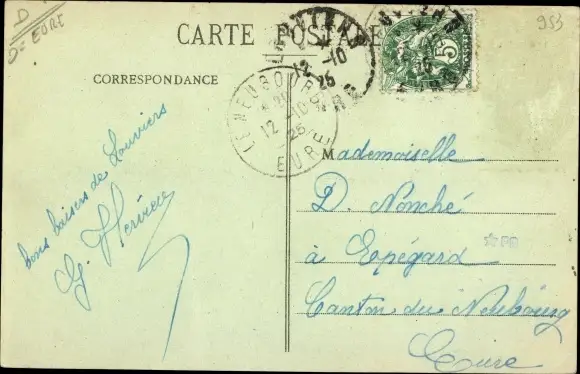 D
Dᵗ EURE
953
CARTE POSTALE
CORRESPONDANCE
LE NEUBOURG
12 -10
25
EURE
LOUVIERS
12 -10
25
EURE
5
bons baisers de Louviers
G. Hervieu
Mademoiselle
D. Nonché
à Epégard
Canton du Neubourg
Eure